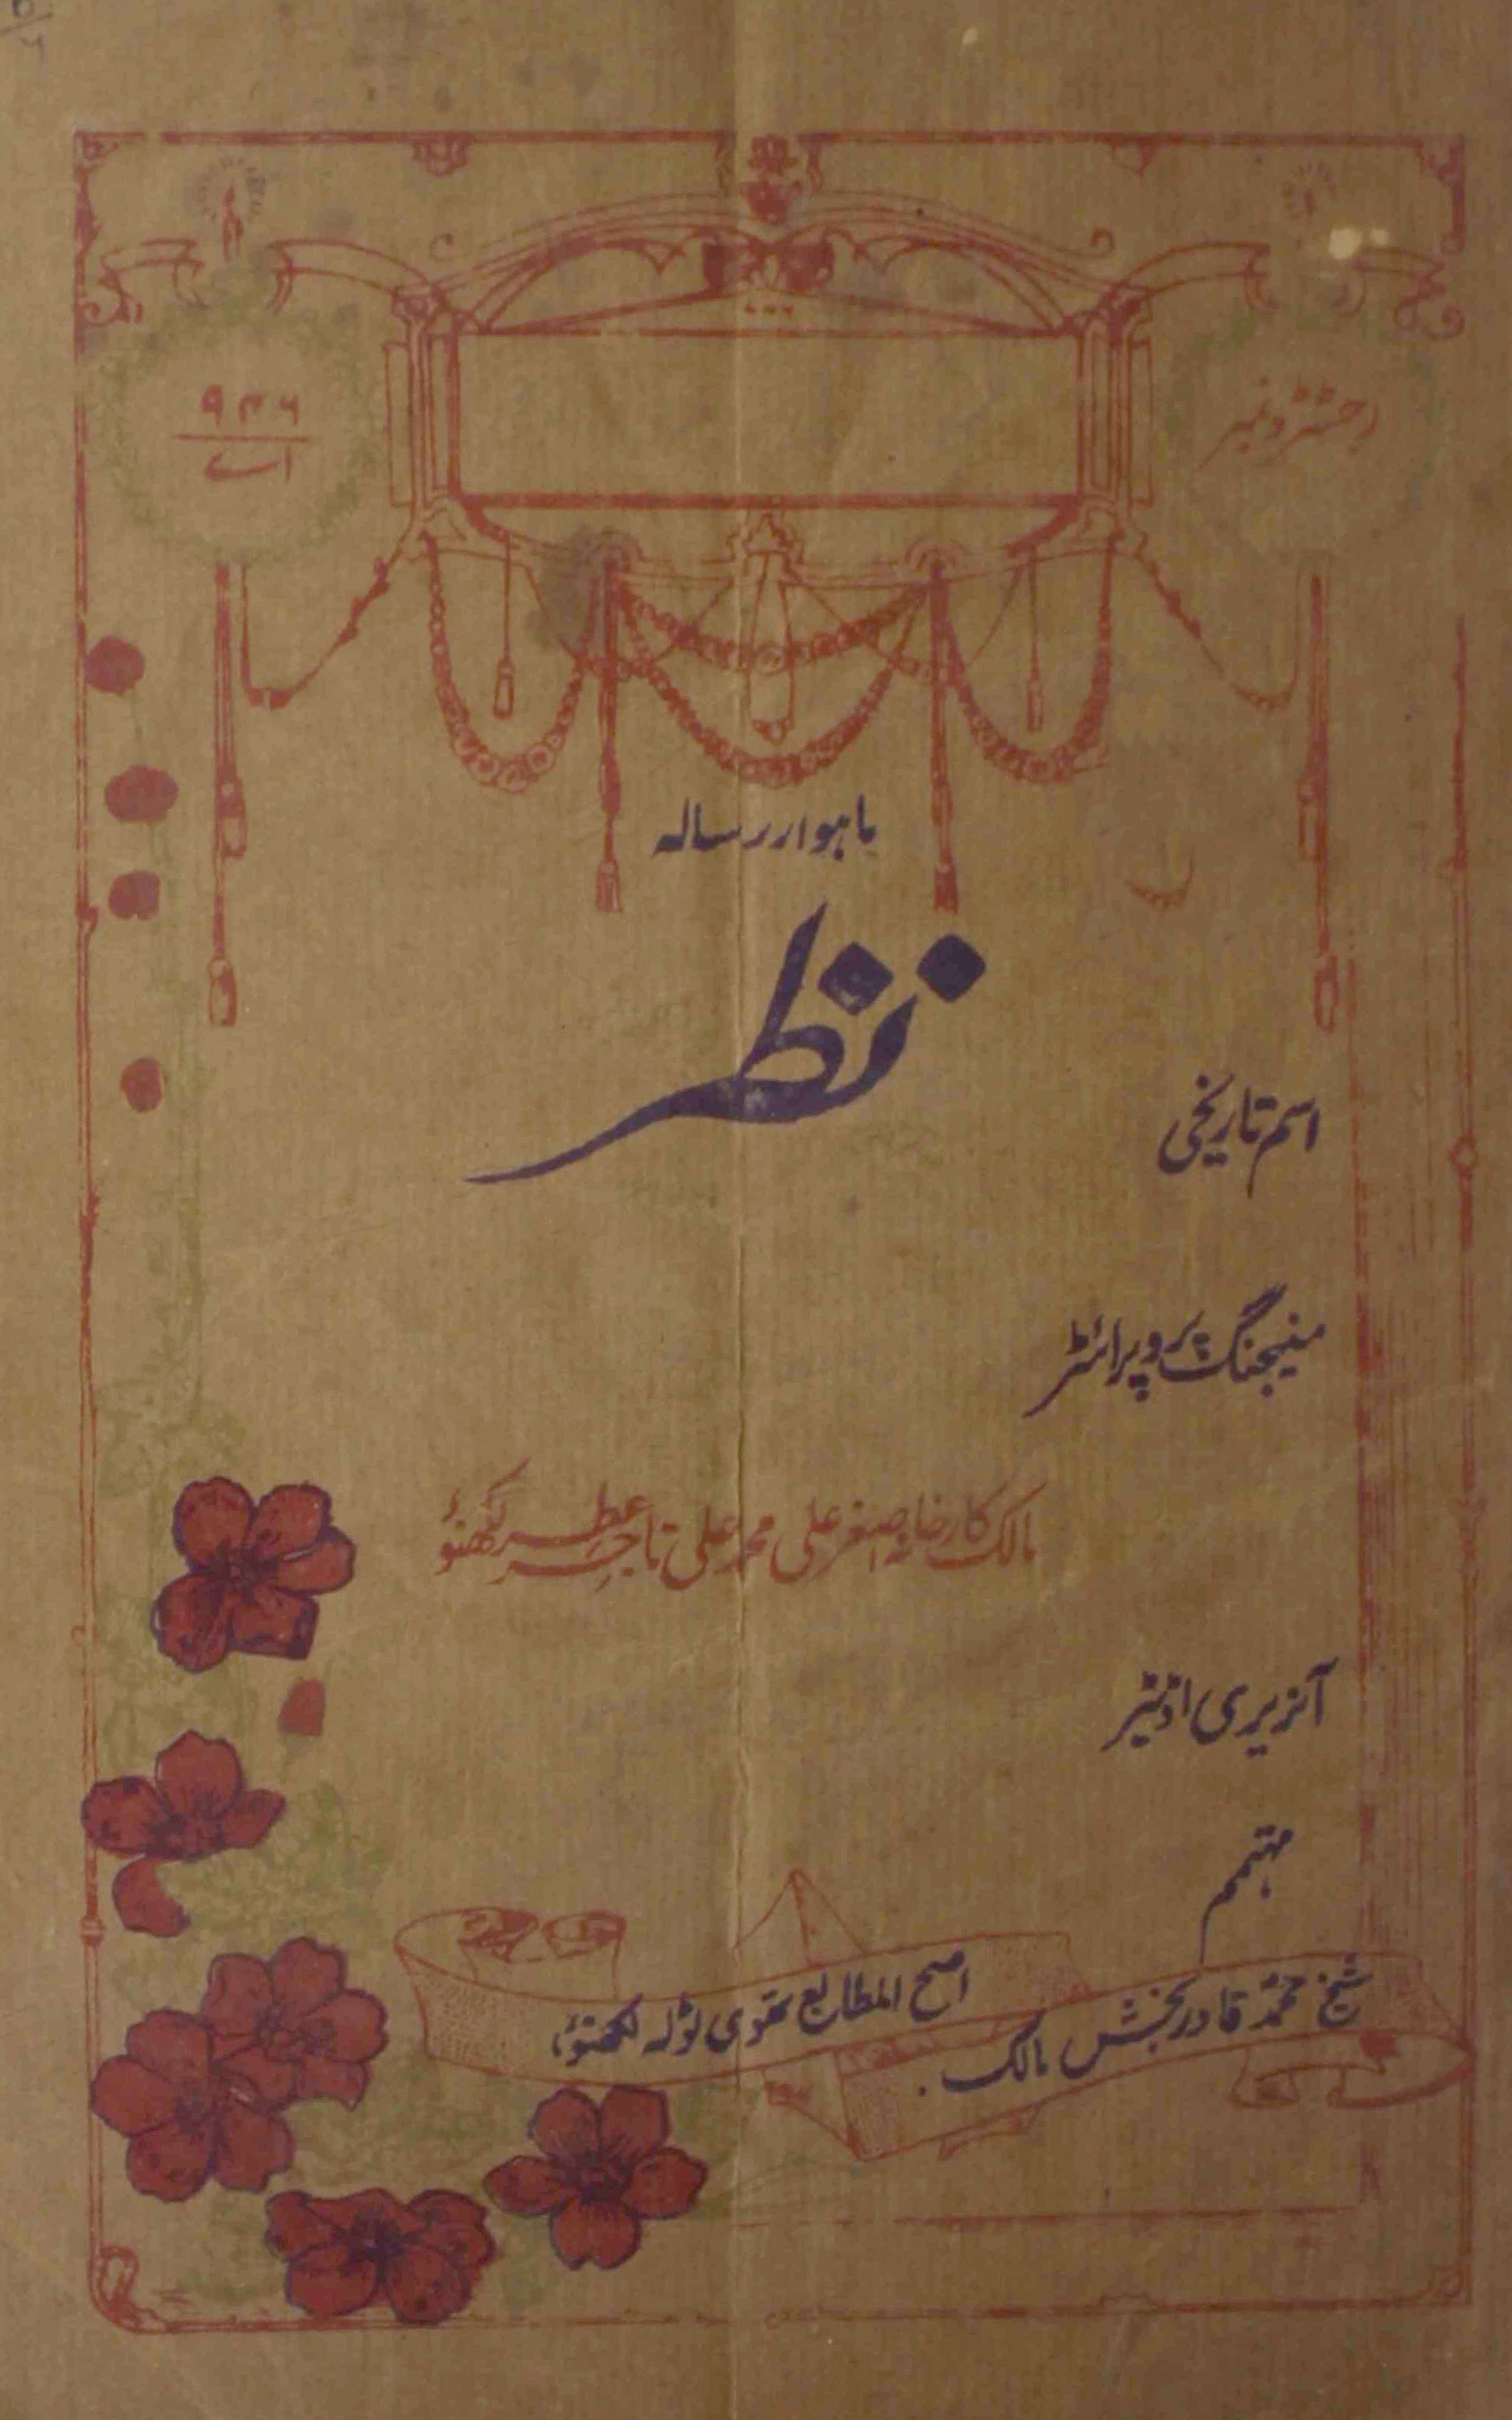 رجسٹرڈ نمبر
۹۴۶
اے
ماہوار رسالہ
نظر
اسم تاریخی
منیجنگ پروپرائٹر
مالک کارخانہ اصغر علی محمد علی تاجر عطر لکھنؤ
آنریری اڈیٹر
مہتمم
شیخ محمد قادر بخش مالک
اصح المطابع تقوی ٹولہ لکھنؤ